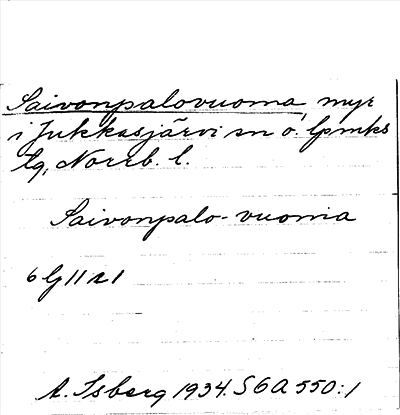 Saivonpalovuoma, myr
i Jukkasjärvi sn o. lpmks
lg, Norrb. l.
Saivonpalo-vuoma
6 G 11 s 1
A. Isberg 1934. S 6 A 550:1